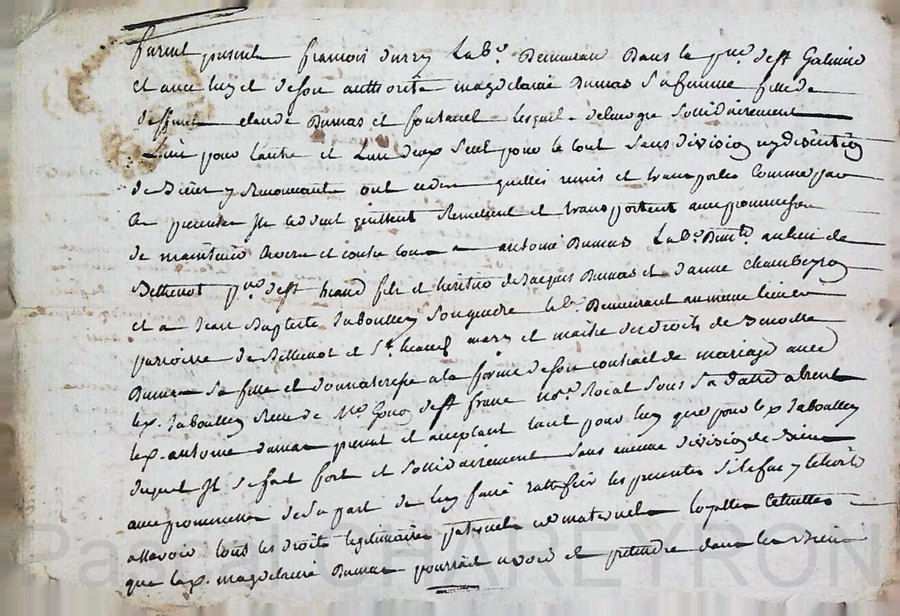 furent presents francois durry Lab.r Demeurant Dans la p.sse de st Galmier
et avec luy et de son authorité magdelaine Dumas sa femme fille de
deffunct claude Dumas et fontanel lesquels de leur gre solidairement
L'un pour l'autre et L'un deux seul pour le tout sans division ny discution
de Biens y Renoncant ont cedes quittes remis et transportes Comme par
Ces presentes Ils cedent quittent Remettent et transportent avec promesse
de maintenir envers et contre tous a antoine Dumas Lab.r Dem.t au lieu de
Bethenot p.sse de st heand fils et heritier de Jacques Dumas et d'anne Chambeyron
et a Jean Baptiste Jaboulley son gendre lab.r Demeurant au meme lieu et
parroisse de Bethenot et S.t heand mary et maitre des droits de Benoite
Dumas sa fille et donnateresse a la forme de son contrat de mariage avec
led. Jaboulley Receu de M.e Gono de st not.re Roial sous sa datte absent
led. antoine dumas present et acceptant tant pour luy que pour led. Jaboulley
duquel Il se fait fort et solidairement sans aucune division de Biens
avec promesse de sa part de luy faire rattiffier les presentes sy le fait y echoit
assavoir tous les droits legitimaires paternels et maternels
que lad. magdelaine Dumas pourrait avoir et pretendre dans les Biens
Pascal CHAREYRON